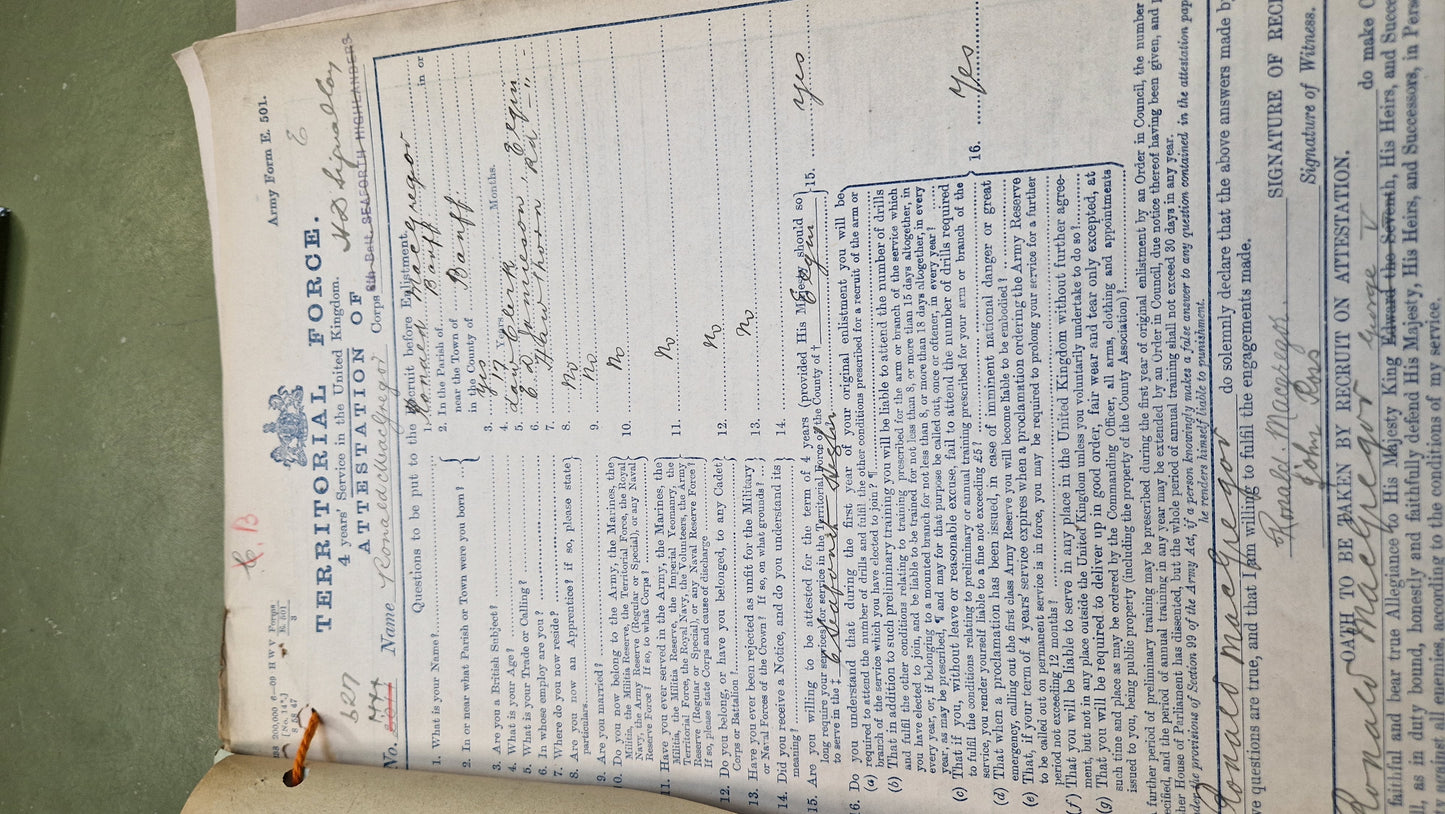 Army Form E. 501.
C.B
200,000 6—09 H W V Forms
[No. 147] E. 501
S 88 47 3
TERRITORIAL FORCE.
4 years' Service in the United Kingdom.
ATTESTATION OF
627
No. Name Ronald MacGregor Corps 6th BAT. SEAFORTH HIGHLANDERS H D Signal Coy
Questions to be put to the Recruit before Enlistment.
1. What is your Name?
1. Ronald MacGregor
2. In or near what Parish or Town were you born?
2. In the Parish of Banff in or
near the Town of
in the County of Banff
3. Are you a British Subject?
3. Yes
4. What is your Age?
4. 17 Years Months.
5. What is your Trade or Calling?
5. Law Clerk
6. In whose employ are you?
6. E. D. Jameson, Elgin
7. Where do you now reside?
7. Hawthorn Rd - " -
8. Are you now an Apprentice? if so, please state
particulars.
8. No
9. Are you married?
9. No.
10. Do you now belong to the Army, the Marines, the
Militia, the Militia Reserve, the Territorial Force, the Royal
Navy, the Army Reserve (Regular or Special), or any Naval
Reserve Force? If so, to what Corps?
10. No
11. Have you ever served in the Army, the Marines, the
Militia, the Militia Reserve, the Imperial Yeomanry, the
Territorial Force, the Royal Navy, the Volunteers, the Army
Reserve (Regular or Special), or any Naval Reserve Force?
If so, please state Corps and cause of discharge
11. No
12. Do you belong, or have you belonged, to any Cadet
Corps or Battalion?
12. No
13. Have you ever been rejected as unfit for the Military
or Naval Forces of the Crown? If so, on what grounds?
13. No
14. Did you receive a Notice, and do you understand its
meaning?
14.
15. Are you willing to be attested for the term of 4 years (provided His Majesty should so
long require your services) for service in the Territorial Force of the County of † Elgin
to serve in the ‡ 6 Seaforth Highrs
15. Yes
16. Do you understand that during the first year of your original enlistment you will be
(a) required to attend the number of drills and fulfil the other conditions prescribed for a recruit of the arm or
branch of the service which you have elected to join? ¶
(b) That in addition to such preliminary training you will be liable to attend the number of drills
and fulfil the other conditions relating to training prescribed for the arm or branch of the service which
you have elected to join, and be liable to be trained for not less than 8, or more than 15 days altogether, in
every year, or, if belonging to a mounted branch for not less than 8, or more than 18 days altogether, in every
year, as may be prescribed, ¶ and may for that purpose be called out, once or oftener, in every year?
(c) That if you, without leave or reasonable excuse, fail to attend the number of drills required
to fulfil the conditions relating to preliminary or annual training prescribed for your arm or branch of the
service, you render yourself liable to a fine not exceeding £5?
16. Yes
(d) That when a proclamation has been issued, in case of imminent national danger or great
emergency, calling out the first class Army Reserve you will become liable to be embodied?
(e) That, if your term of 4 years' service expires when a proclamation ordering the Army Reserve
to be called out on permanent service is in force, you may be required to prolong your service for a further
period not exceeding 12 months?
(f) That you will be liable to serve in any place in the United Kingdom without further agree-
ment, but not in any place outside the United Kingdom unless you voluntarily undertake to do so?
(g) That you will be required to deliver up in good order, fair wear and tear only excepted, at
such time and place as may be ordered by the Commanding Officer, all arms, clothing and appointments
issued to you, being public property (including the property of the County Association)?
further period of preliminary training may be prescribed during the first year of original enlistment by an Order in Council, the number
ecified, and the period of annual training in any year may be extended by an Order in Council, due notice thereof having been given, and
her House of Parliament has dissented, but the whole period of annual training shall not exceed 30 days in any year.
nder the provisions of Section 99 of the Army Act, if a person knowingly makes a false answer to any question contained in the attestation pap
he renders himself liable to punishment.
Ronald MacGregor do solemnly declare that the above answers made by
ve questions are true, and that I am willing to fulfil the engagements made.
Ronald. Macgregor. SIGNATURE OF RECR
John Ross Signature of Witness.
OATH TO BE TAKEN BY RECRUIT ON ATTESTATION.
Ronald MacGregor do make O
faithful and bear true Allegiance to His Majesty King Edward the Seventh, George V His Heirs, and Succe
ll, as in duty bound, honestly and faithfully defend His Majesty, His Heirs, and Successors, in Pers
y against all enemies, according to the conditions of my service.